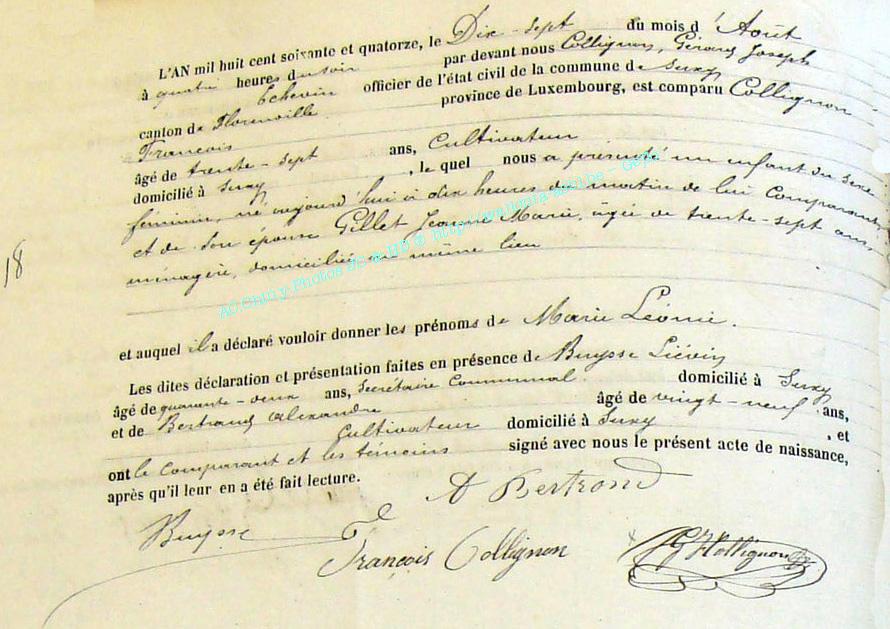 L'AN mil huit cent soixante et quatorze, le Dix-sept du mois d'Août
à quatre heures du soir par devant nous Collignon, Gérard Joseph
Echevin officier de l'état civil de la commune de Suxy
canton de Florenville province de Luxembourg, est comparu Collignon
François
âgé de trente-sept ans, Cultivateur
domicilié à Suxy, le quel nous a présenté un enfant du sexe
féminin, né aujourd'hui à dix heures du matin de lui Comparant,
et de son épouse Gillet Jeanne Marie, âgée de trente-sept ans
ménagère, domiciliée au même lieu
18
AC Chiny Photos © http://wallonia-asbl.be - Gen
et auquel il a déclaré vouloir donner les prénoms de Marie Léonie.
Les dites déclaration et présentation faites en présence de Buysse Liévin
âgé de quarante-deux ans, Secrétaire Communal. domicilié à Suxy
et de Bertrand Alexandre âgé de vingt-neuf ans,
Cultivateur domicilié à Suxy, et
ont le comparant et les témoins signé avec nous le présent acte de naissance,
après qu'il leur en a été fait lecture.
A Bertrand
Buysse
François Collignon
GJ Collignon